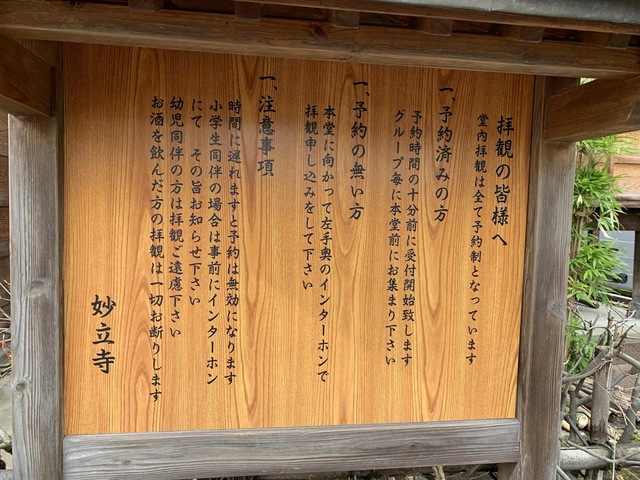 拝観の皆様へ
堂内拝観は全て予約制となっています
一、予約済みの方
予約時間の十分前に受付開始致します
グループ毎に本堂前にお集まり下さい
一、予約の無い方
本堂に向かって左手奥のインターホンで
拝観申し込みをして下さい
一、注意事項
時間に遅れますと予約は無効になります
小学生同伴の場合は事前にインターホン
にて その旨お知らせ下さい
幼児同伴の方は拝観ご遠慮下さい
お酒を飲んだ方の拝観は一切お断りします
妙立寺